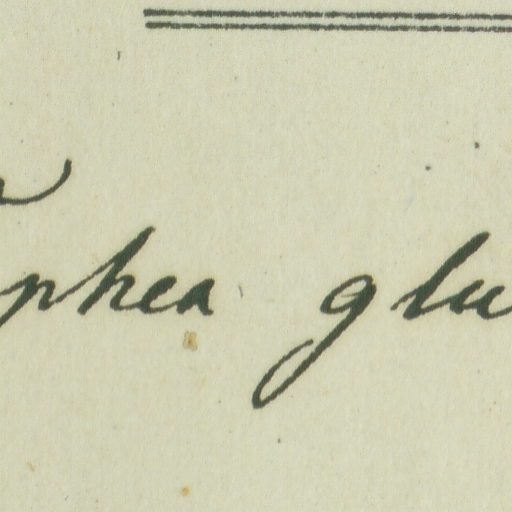 phea glu